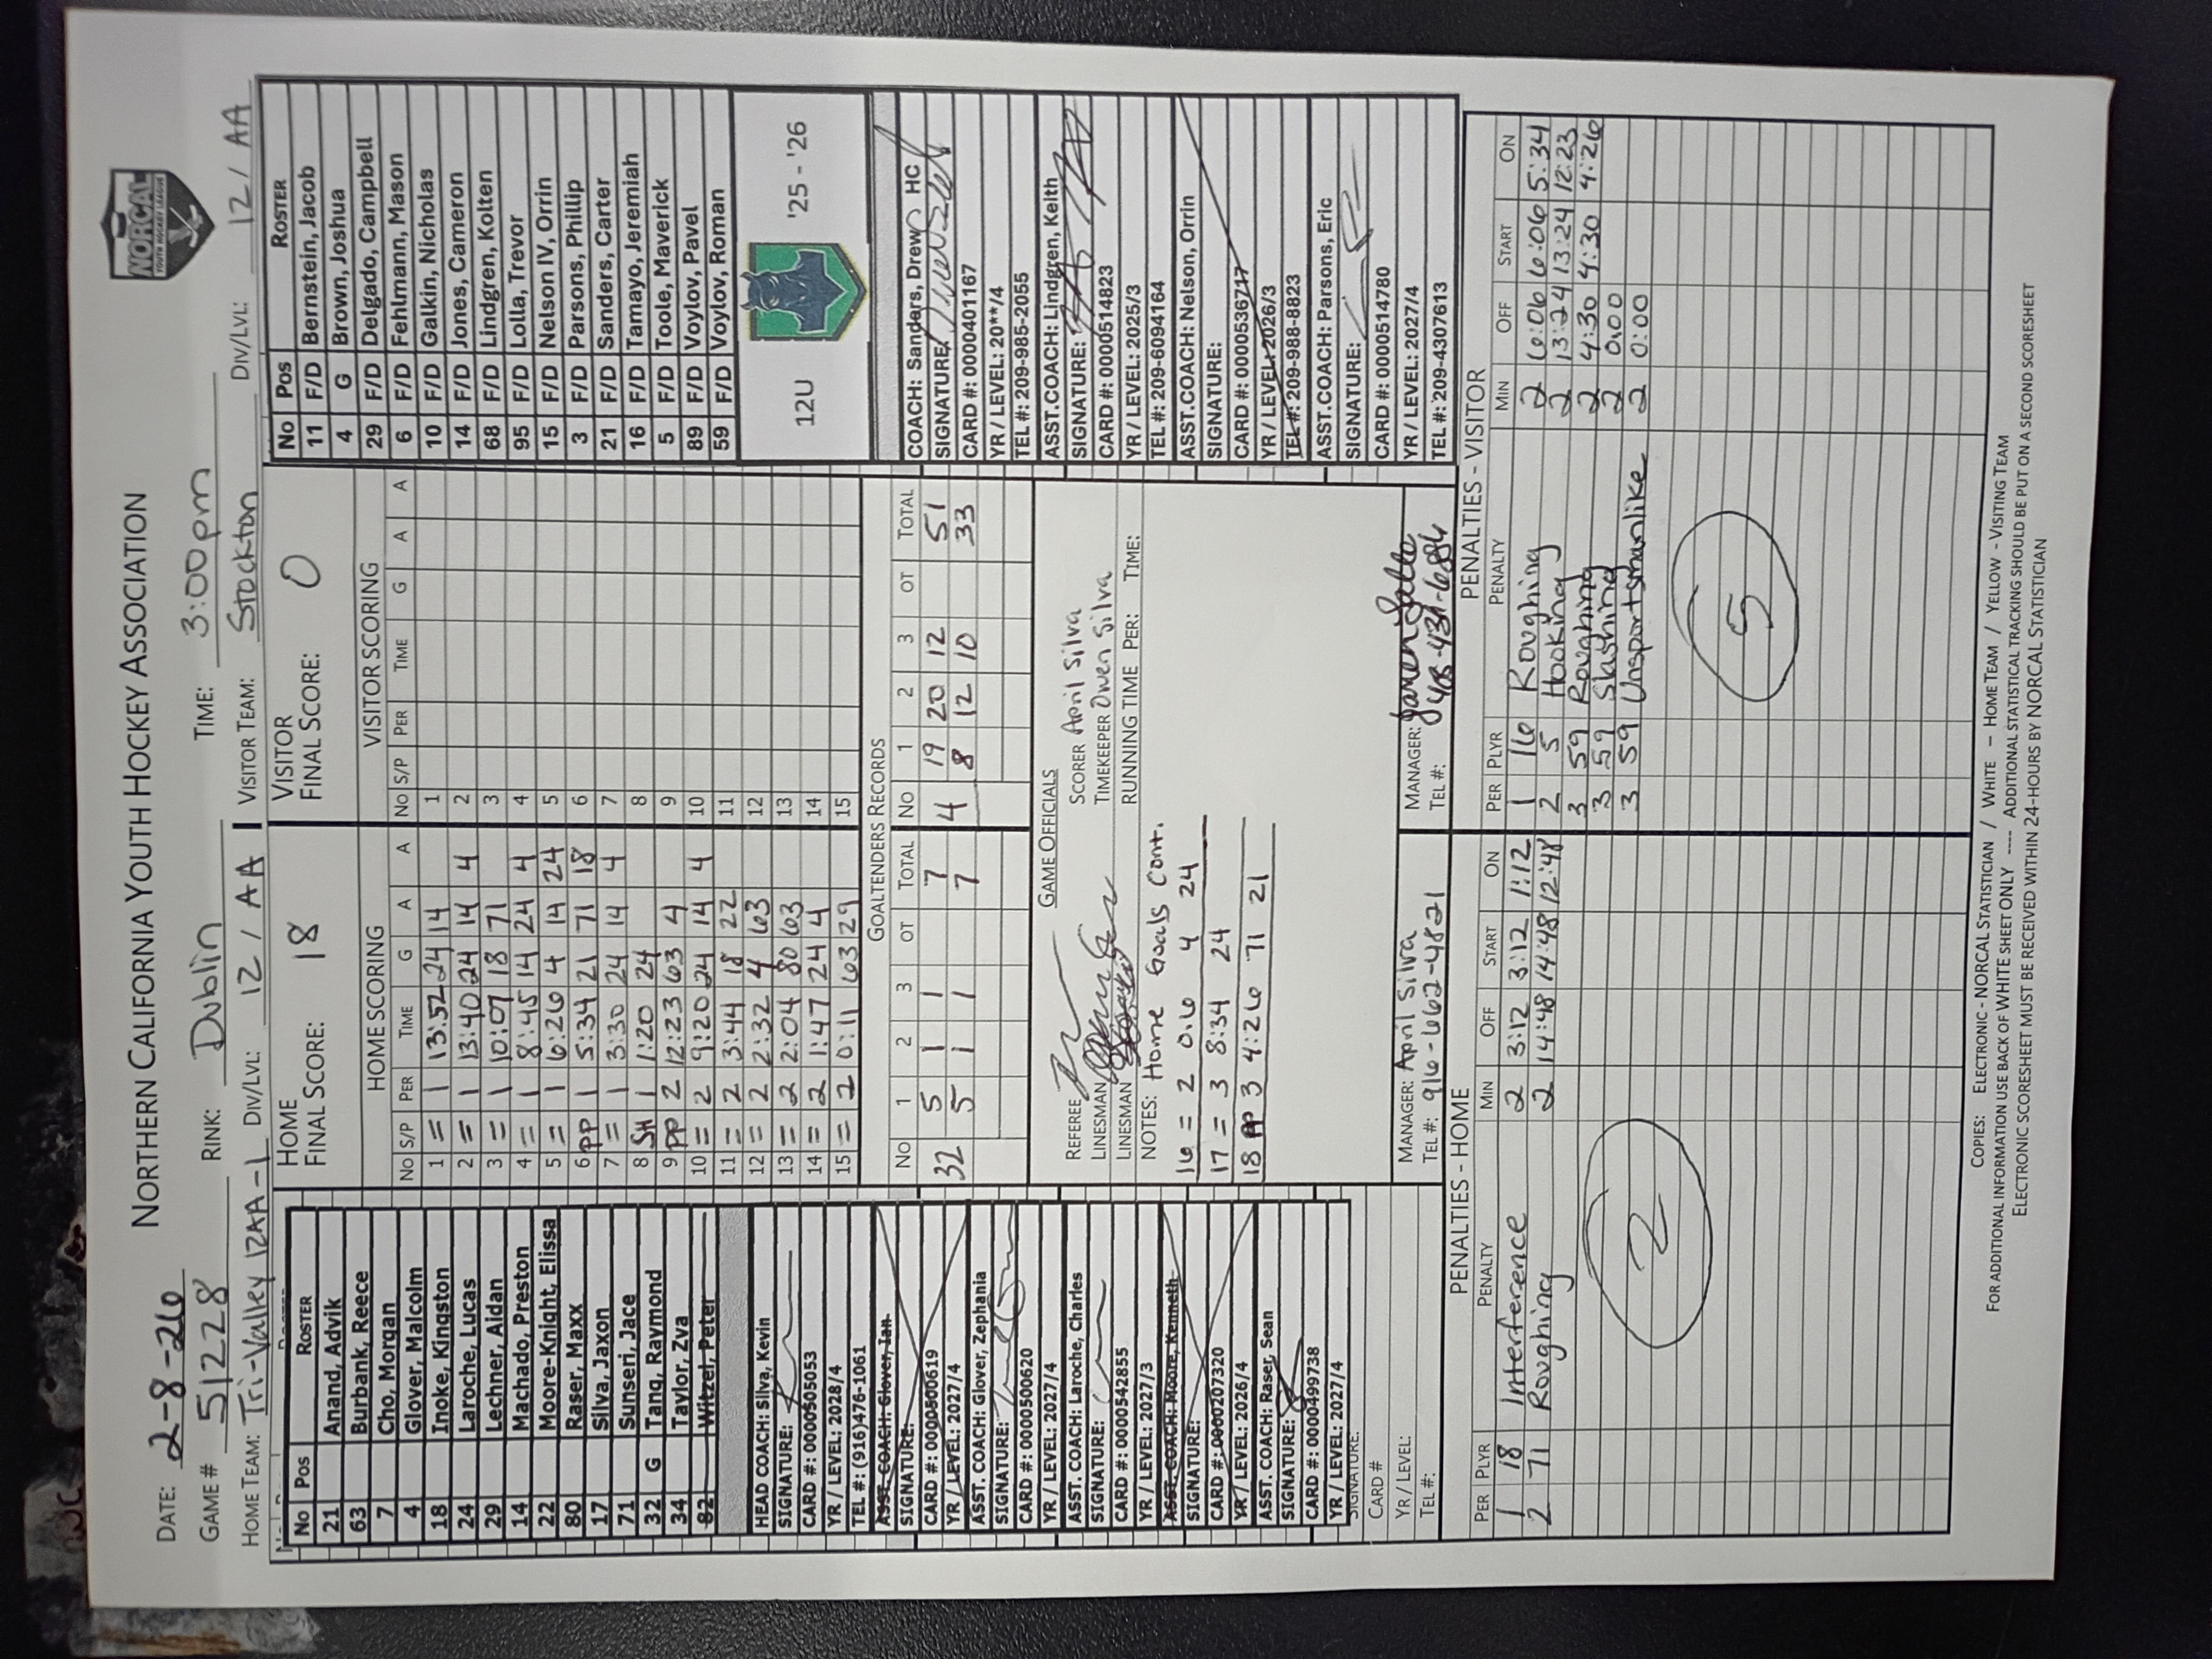 NORCAL
YOUTH HOCKEY LEAGUE
NORTHERN CALIFORNIA YOUTH HOCKEY ASSOCIATION
DATE: 2-8-26
GAME # 51228 RINK: Dublin TIME: 3:00pm
HOME TEAM: Tri-Valley 12AA-1 DIV/LVL: 12 / AA VISITOR TEAM: Stockton DIV/LVL: 12 / AA
No Pos ROSTER
21 Anand, Advik
63 Burbank, Reece
7 Cho, Morgan
4 Glover, Malcolm
18 Inoke, Kingston
24 Laroche, Lucas
29 Lechner, Aidan
14 Machado, Preston
22 Moore-Knight, Elissa
80 Raser, Maxx
17 Silva, Jaxon
71 Sunseri, Jace
32 G Tang, Raymond
34 Taylor, Zva
82 Witzel, Peter
HEAD COACH: Silva, Kevin
SIGNATURE:
CARD #: 0000505053
YR / LEVEL: 2028/4
TEL #: (916)476-1061
ASST. COACH: Glover, Ian
SIGNATURE:
CARD #: 0000500619
YR / LEVEL: 2027/4
ASST. COACH: Glover, Zephania
SIGNATURE:
CARD #: 0000500620
YR / LEVEL: 2027/4
ASST. COACH: Laroche, Charles
SIGNATURE:
CARD #: 0000542855
YR / LEVEL: 2027/3
ASST. COACH: Moore, Kenneth
SIGNATURE:
CARD #: 0000207320
YR / LEVEL: 2026/4
ASST. COACH: Raser, Sean
SIGNATURE:
CARD #: 0000499738
YR / LEVEL: 2027/4
SIGNATURE:
CARD #
YR / LEVEL:
TEL #:
HOME
FINAL SCORE: 18
HOME SCORING
No S/P PER TIME G A A
1 = 1 13:52 24 14
2 = 1 13:40 24 14 4
3 = 1 10:07 18 71
4 = 1 8:45 14 24 4
5 = 1 6:26 4 14 24
6 PP 1 5:34 21 71 18
7 = 1 3:30 24 14 4
8 SH 1 1:20 24
9 PP 2 12:23 63 4
10 = 2 9:20 24 14 4
11 = 2 3:44 18 22
12 = 2 2:32 4 63
13 = 2 2:04 80 63
14 = 2 1:47 24 4
15 = 2 0:11 63 29
VISITOR
FINAL SCORE: 0
VISITOR SCORING
No S/P PER TIME G A A
1
2
3
4
5
6
7
8
9
10
11
12
13
14
15
GOALTENDERS RECORDS
No 1 2 3 OT TOTAL No 1 2 3 OT TOTAL
32 5 1 1 7 4 19 20 12 51
5 1 1 7 8 12 10 33
GAME OFFICIALS
REFEREE SCORER April Silva
LINESMAN TIMEKEEPER Owen Silva
LINESMAN RUNNING TIME PER: TIME:
NOTES: Home Goals Cont.
16 = 2 0.6 4 24
17 = 3 8:34 24
18 PP 3 4:26 71 21
MANAGER: April Silva
TEL #: 916-662-4821
MANAGER:
TEL #: 408-431-6884
No Pos ROSTER
11 F/D Bernstein, Jacob
4 G Brown, Joshua
29 F/D Delgado, Campbell
6 F/D Fehlmann, Mason
10 F/D Galkin, Nicholas
14 F/D Jones, Cameron
68 F/D Lindgren, Kolten
95 F/D Lolla, Trevor
15 F/D Nelson IV, Orrin
3 F/D Parsons, Phillip
21 F/D Sanders, Carter
16 F/D Tamayo, Jeremiah
5 F/D Toole, Maverick
89 F/D Voylov, Pavel
59 F/D Voylov, Roman
12U '25 - '26
COACH: Sanders, Drew HC
SIGNATURE:
CARD #: 0000401167
YR / LEVEL: 20**/4
TEL #: 209-985-2055
ASST.COACH: Lindgren, Keith
SIGNATURE:
CARD #: 0000514823
YR / LEVEL: 2025/3
TEL #: 209-6094164
ASST.COACH: Nelson, Orrin
SIGNATURE:
CARD #: 0000536717
YR / LEVEL: 2026/3
TEL #: 209-988-8823
ASST.COACH: Parsons, Eric
SIGNATURE:
CARD #: 0000514780
YR / LEVEL: 2027/4
TEL #: 209-4307613
PENALTIES - HOME
PER PLYR PENALTY MIN OFF START ON
1 18 Interference 2 3:12 3:12 1:12
2 71 Roughing 2 14:48 14:48 12:48
2
PENALTIES - VISITOR
PER PLYR PENALTY MIN OFF START ON
1 16 Roughing 2 6:06 6:06 5:34
2 5 Hooking 2 13:24 13:24 12:23
3 59 Roughing 2 4:30 4:30 4:26
3 59 Slashing 2 0:00
3 59 Unsportsmanlike 2 0:00
5
COPIES: ELECTRONIC - NORCAL STATISTICIAN / WHITE – HOME TEAM / YELLOW - VISITING TEAM
FOR ADDITIONAL INFORMATION USE BACK OF WHITE SHEET ONLY ---- ADDITIONAL STATISTICAL TRACKING SHOULD BE PUT ON A SECOND SCORESHEET
ELECTRONIC SCORESHEET MUST BE RECEIVED WITHIN 24-HOURS BY NORCAL STATISTICIAN